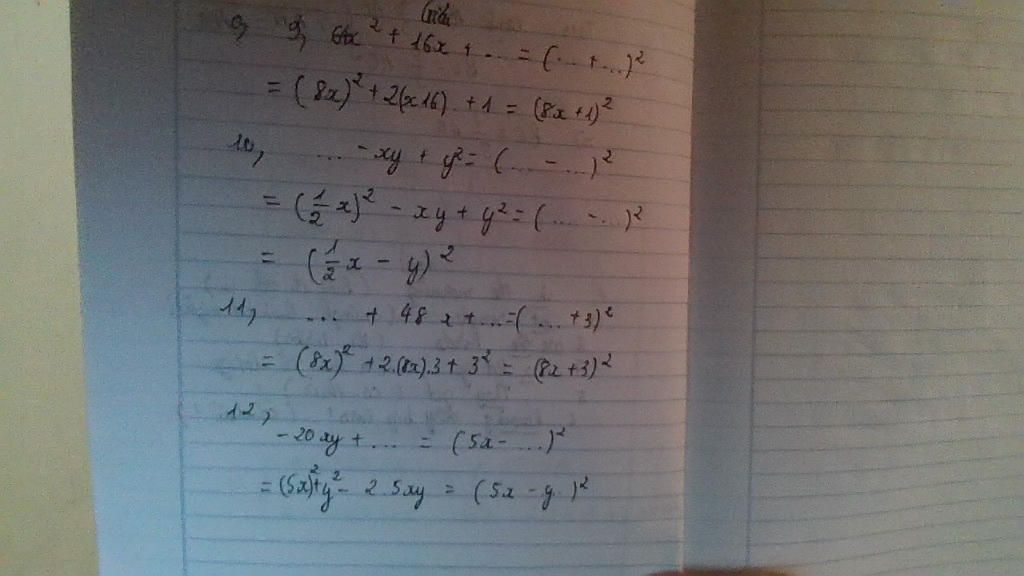 9, 64x² + 16x + ... = (... + ...)²
= (8x)² + 2(x16) + 1 = (8x + 1)²
10, ... - xy + y² = (... - ...)²
= (1/2 x)² - xy + y² = (... - ...)²
= (1/2 x - y)²
11, ... + 48x + ... = (... + 3)²
= (8x)² + 2.(8x).3 + 3² = (8x + 3)²
12,
- 20xy + ... = (5x - ...)²
= (5x)² + y² - 2.5xy = (5x - y)²